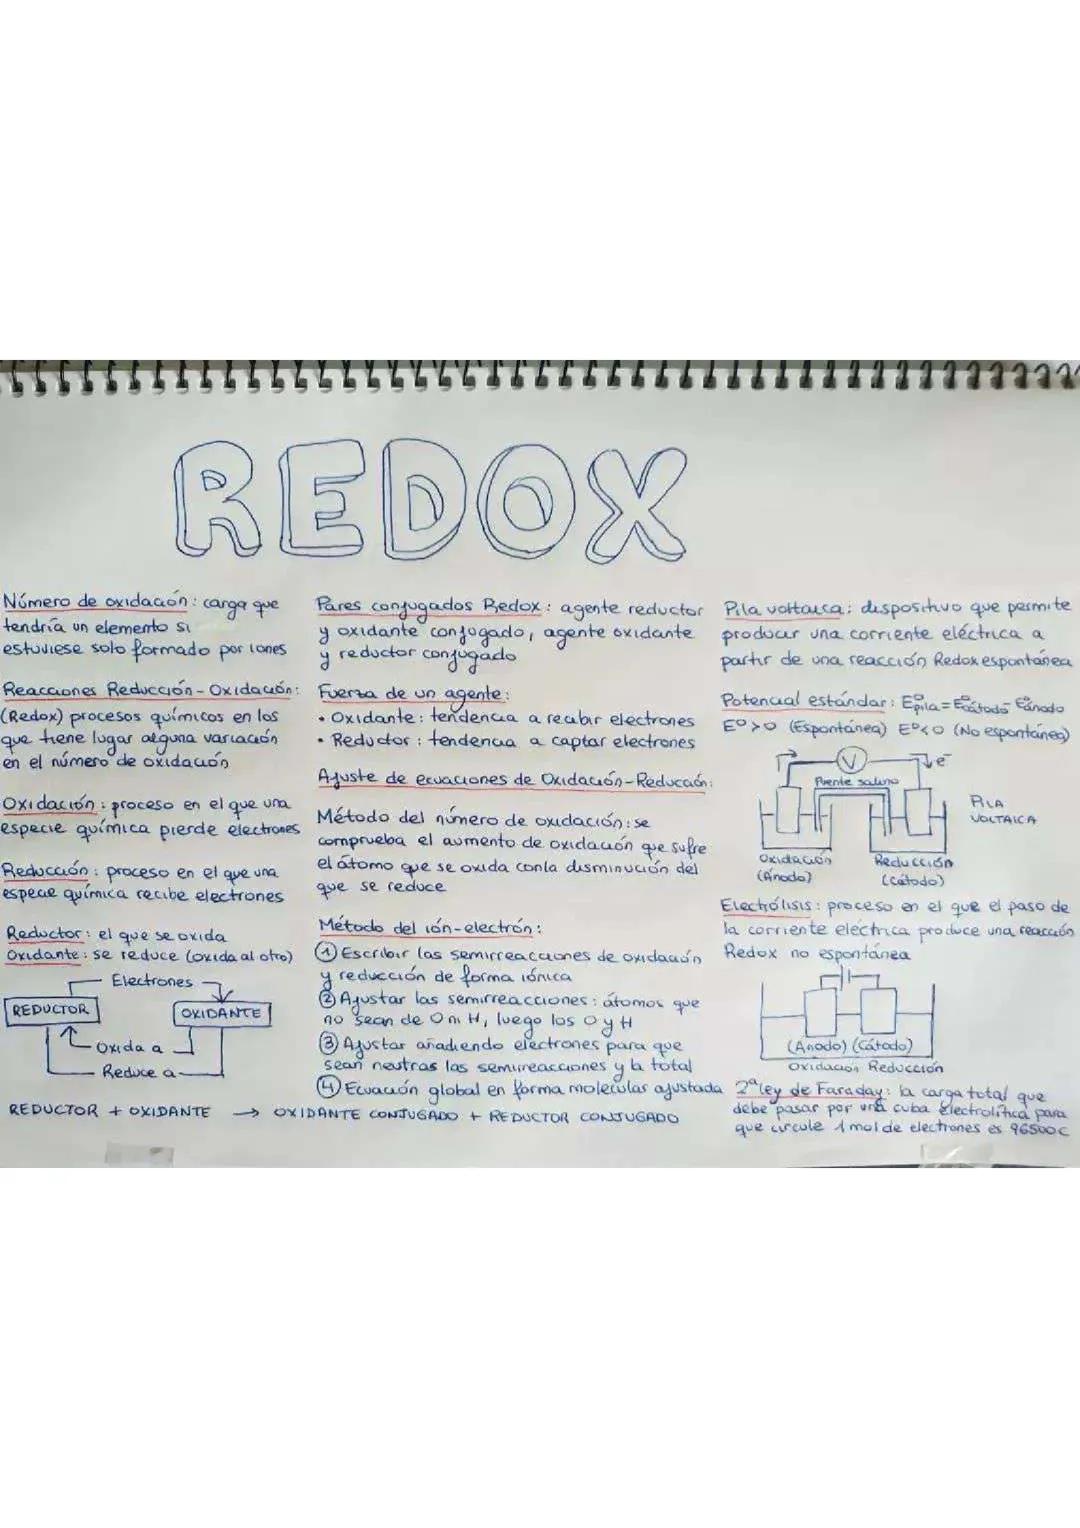 REDOX
Número de oxidación: carga que
tendría un elemento si
estuviese solo formado por iones
Reacciones Reducción-Oxidación:
(Redox) procesos químicos en los
que tiene lugar alguna variación
en el número de oxidación
Oxidación: proceso en el que una
especie química pierde electrones
Reducción: proceso en el que una
especie química recibe electrones
Reductor: el que se oxida
Oxidante: se reduce (oxida al otro)
Electrones
REDUCTOR
OXIDANTE
Oxida a
Reduce a
REDUCTOR + OXIDANTE → OXIDANTE CONJUGADO + REDUCTOR CONJUGADO
Pares conjugados Redox: agente reductor
y oxidante conjogado, agente oxidante
y reductor conjugado
Fuerza de un agente:
• Oxidante: tendencia a recibir electrones
• Reductor: tendencia a captar electrones
Ajuste de ecuaciones de Oxidación-Reducción:
Método del número de oxidación: se
comprueba el aumento de oxidación que sufre
el átomo que se oxida con la disminución del
que se reduce
Método del ión-electrón:
① Escribir las semirreacciones de oxidación
y reducción de forma iónica
② Ajustar las semirreacciones: átomos que
no sean de O ni H, luego los O y H
③ Ajustar añadiendo electrones para que
sean neutras las semirreacciones y la total
④ Ecuación global en forma molecular ajustada
Pila voltaica: dispositivo que permite
producir una corriente eléctrica a
partir de una reacción Redox espontánea
Potencial estándar: E°pila = E°cátodo - E°ánodo
E°>0 (Espontánea) E°<0 (No espontánea)
V
e⁻
Puente salino
PILA
VOLTAICA
Oxidación
(Ánodo)
Reducción
(Cátodo)
Electrólisis: proceso en el que el paso de
la corriente eléctrica produce una reacción
Redox no espontánea
(Ánodo) (Cátodo)
Oxidación Reducción
2ª ley de Faraday: la carga total que
debe pasar por una cuba electrolítica para
que circule 1 mol de electrones es 96500C